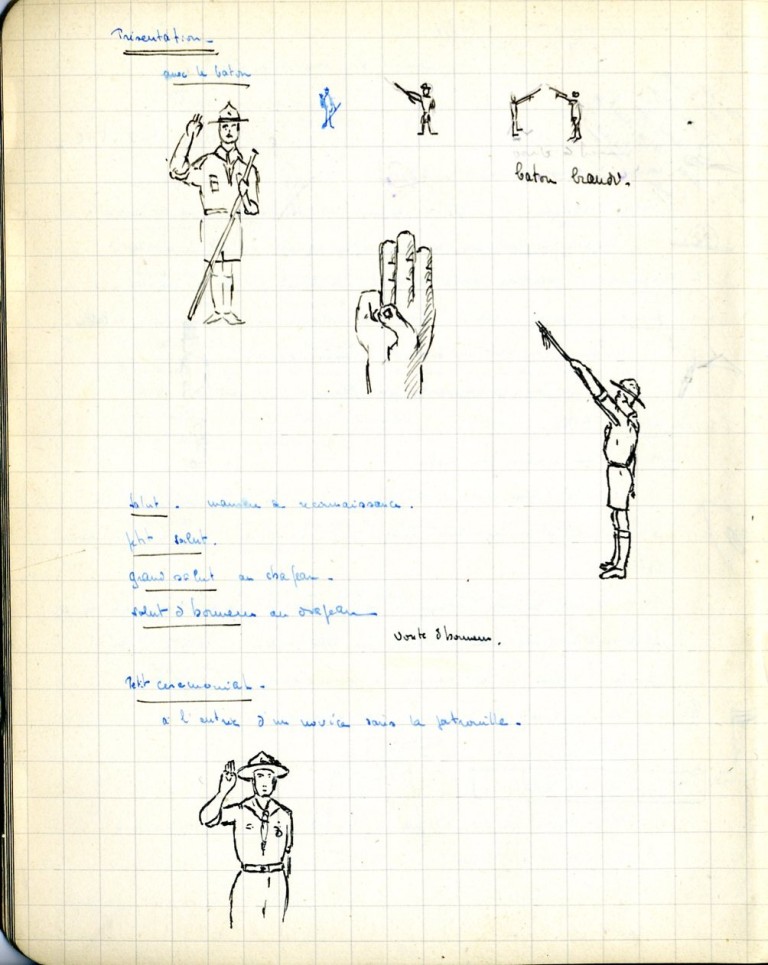 Présentation.
avec le baton
baton brandi.
Salut. manière de reconnaissance.
petit salut.
grand salut au chapeau.
salut d'honneur au drapeau
voute d'honneur.
Petit ceremonial.
à l'entrée d'un novice dans la patrouille.